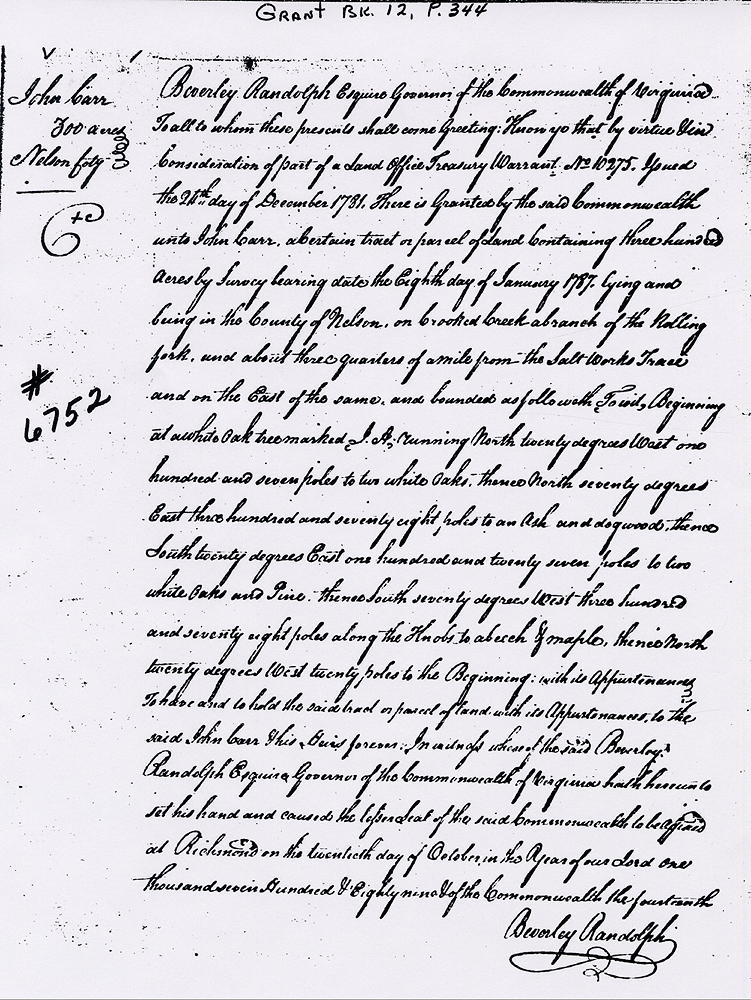 GRANT BK. 12, P. 344
John Carr
300 acres
Nelson Coty
#
6752
Beverley Randolph Esquire Governor of the Commonwealth of Virginia
To all to whom these presents shall come Greeting: Know ye that by virtue & in
Consideration of part of a Land Office Treasury Warrant No 10275. Issued
the 24th day of December 1781. There is Granted by the said Commonwealth
unto John Carr, a Certain tract or parcel of Land Containing three hundred
Acres by Survey bearing date the Eighth day of January 1787. lying and
being in the County of Nelson, on Crooked Creek a branch of the Rolling
fork, and about three quarters of a mile from the Salt Works Trace
and on the East of the same, and bounded as followeth Towit, Beginning
at a white Oak tree marked J. A. running North twenty degrees West one
hundred and seven poles to two white Oaks, thence North seventy degrees
East three hundred and seventy eight poles to an Ash and dogwood, thence
South twenty degrees East one hundred and twenty seven poles to two
white Oaks and Pine. thence South seventy degrees West three hundred
and seventy eight poles along the Knobs to a beech & maple, thence North
twenty degrees West twenty poles to the Beginning; with its Appurtenances
To have and to hold the said tract or parcel of land with its Appurtenances, to the
said John Carr & his Heirs forever. In witness whereof the said Beverley
Randolph Esquire Governor of the Commonwealth of Virginia hath hereunto
set his hand and caused the lesser Seal of the said Commonwealth to be affixed
at Richmond on the twentieth day of October, in the Year of our Lord one
thousand seven Hundred & Eighty nine & of the Commonwealth the fourteenth
Beverley Randolph